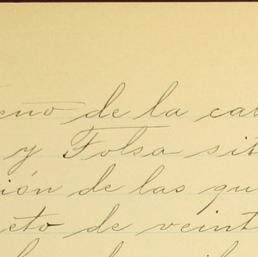 eño de la ca
y Folsa sit
ión de las qu
eto de veint